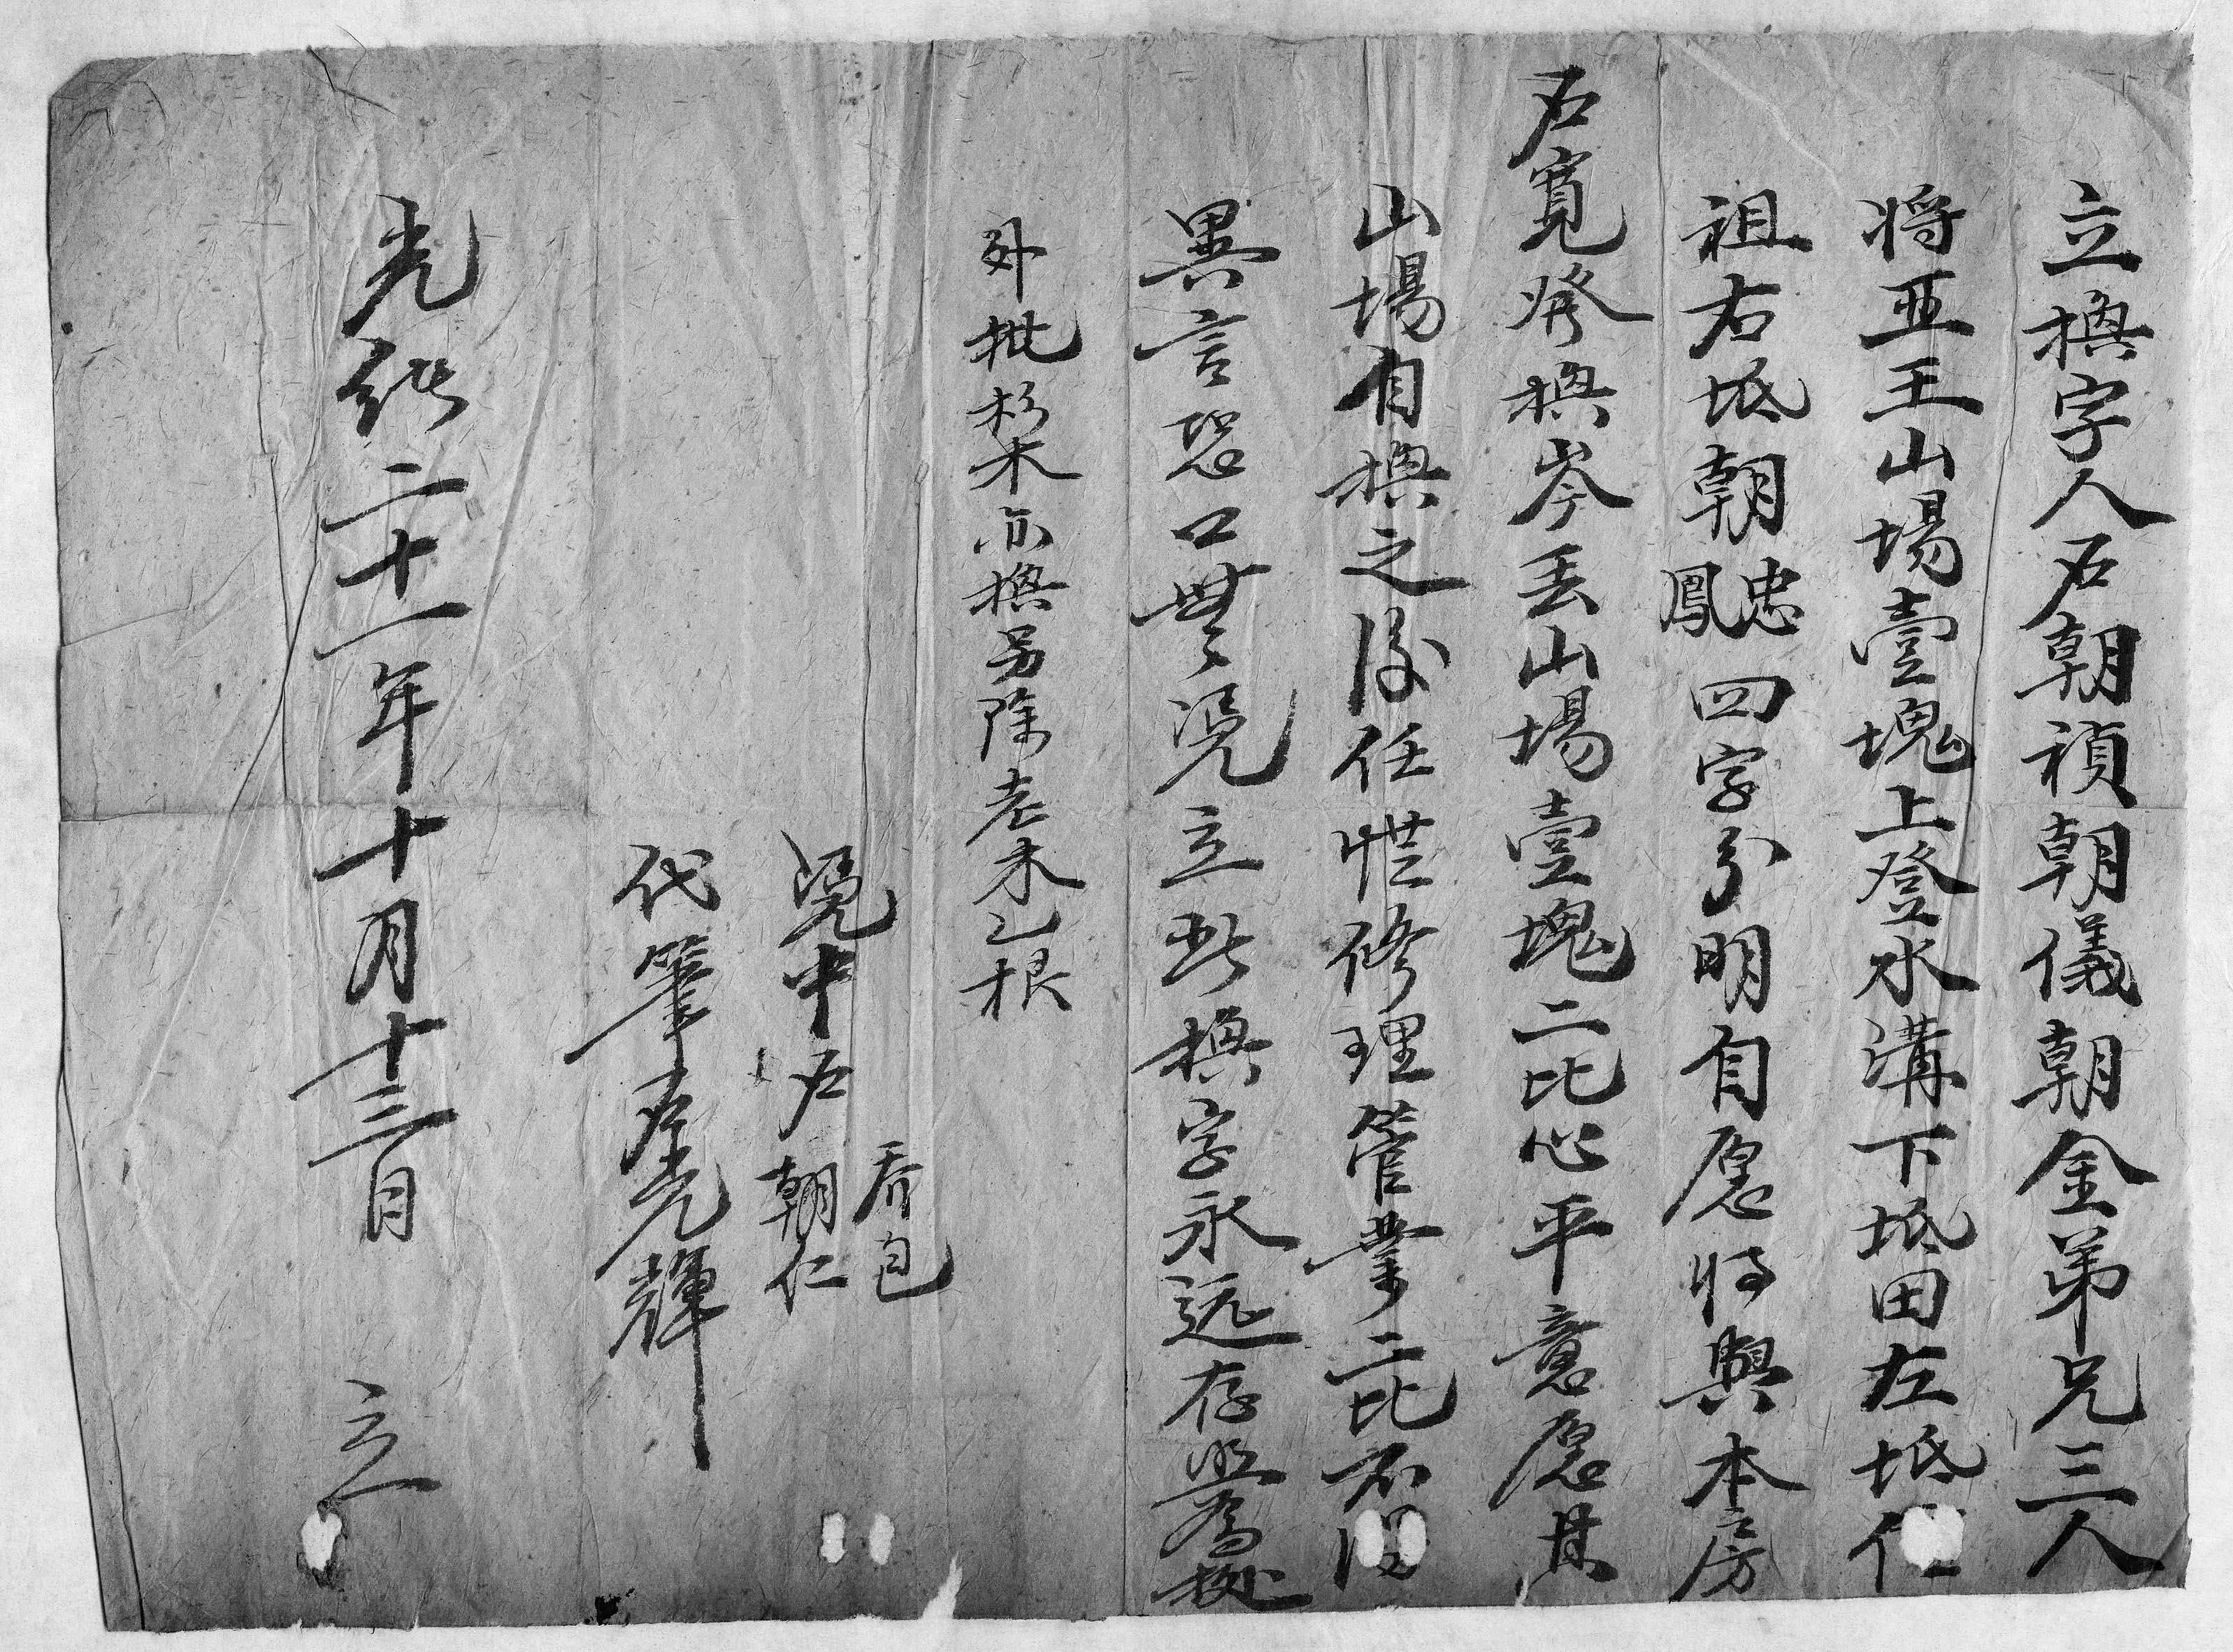 立換字人石朝禎朝儀朝金弟兄三人
将亚王山場壹塊上登水溝下坻田左坻
祖右坻朝忠鳳四字分明自愿将與本房
石寬發換岑丢山場壹塊二比心平意愿其
山場自換之後任凴修理管業二比不得
異言恐口無凴立此換字永远存照為據
外批杉木亦換另除老木乙根
凴中石喬包
朝仁
代筆石光輝
光緒二十一年十月十三日 立